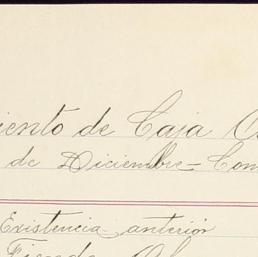 iento de Caja
de Diciembre=Com
Existencia anterior